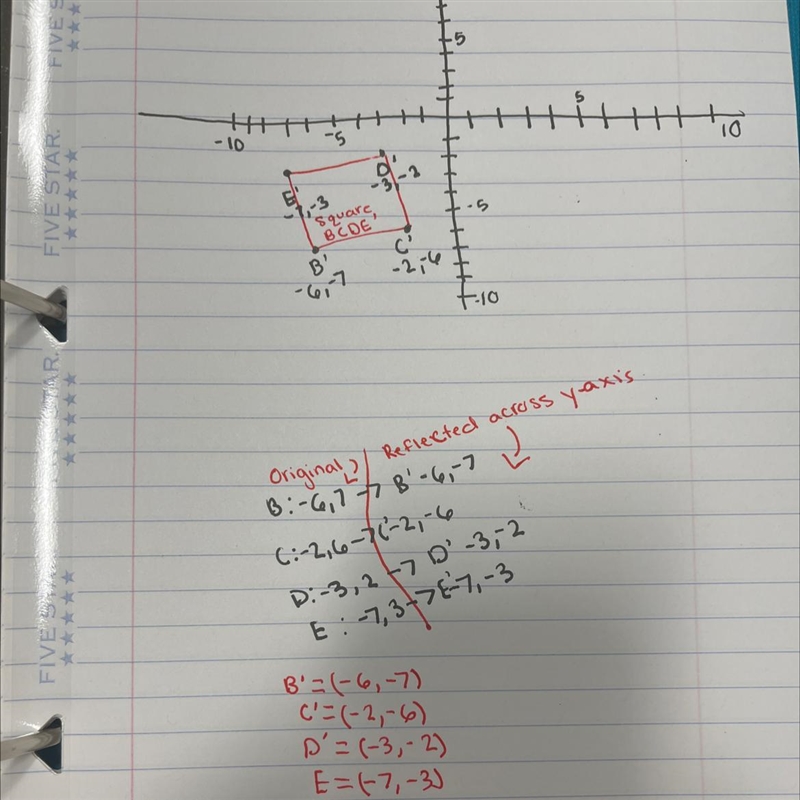 5
5
-10
-5
10
D'
-3,-2
E'
-7,-3
-5
Square
BCDE'
C'
-2,-6
B'
-6,-7
-10
Reflected across y-axis
Original
B:-6,7 → B' -6,-7
C:-2,6 → C' -2,-6
D:-3,2 → D' -3,-2
E: -7,3 → E' -7,-3
B'=(-6,-7)
C'=(-2,-6)
D'=(-3,-2)
E=(-7,-3)
FIVE STAR.
FIVE STAR.
FIVE STAR.
FIVE STAR